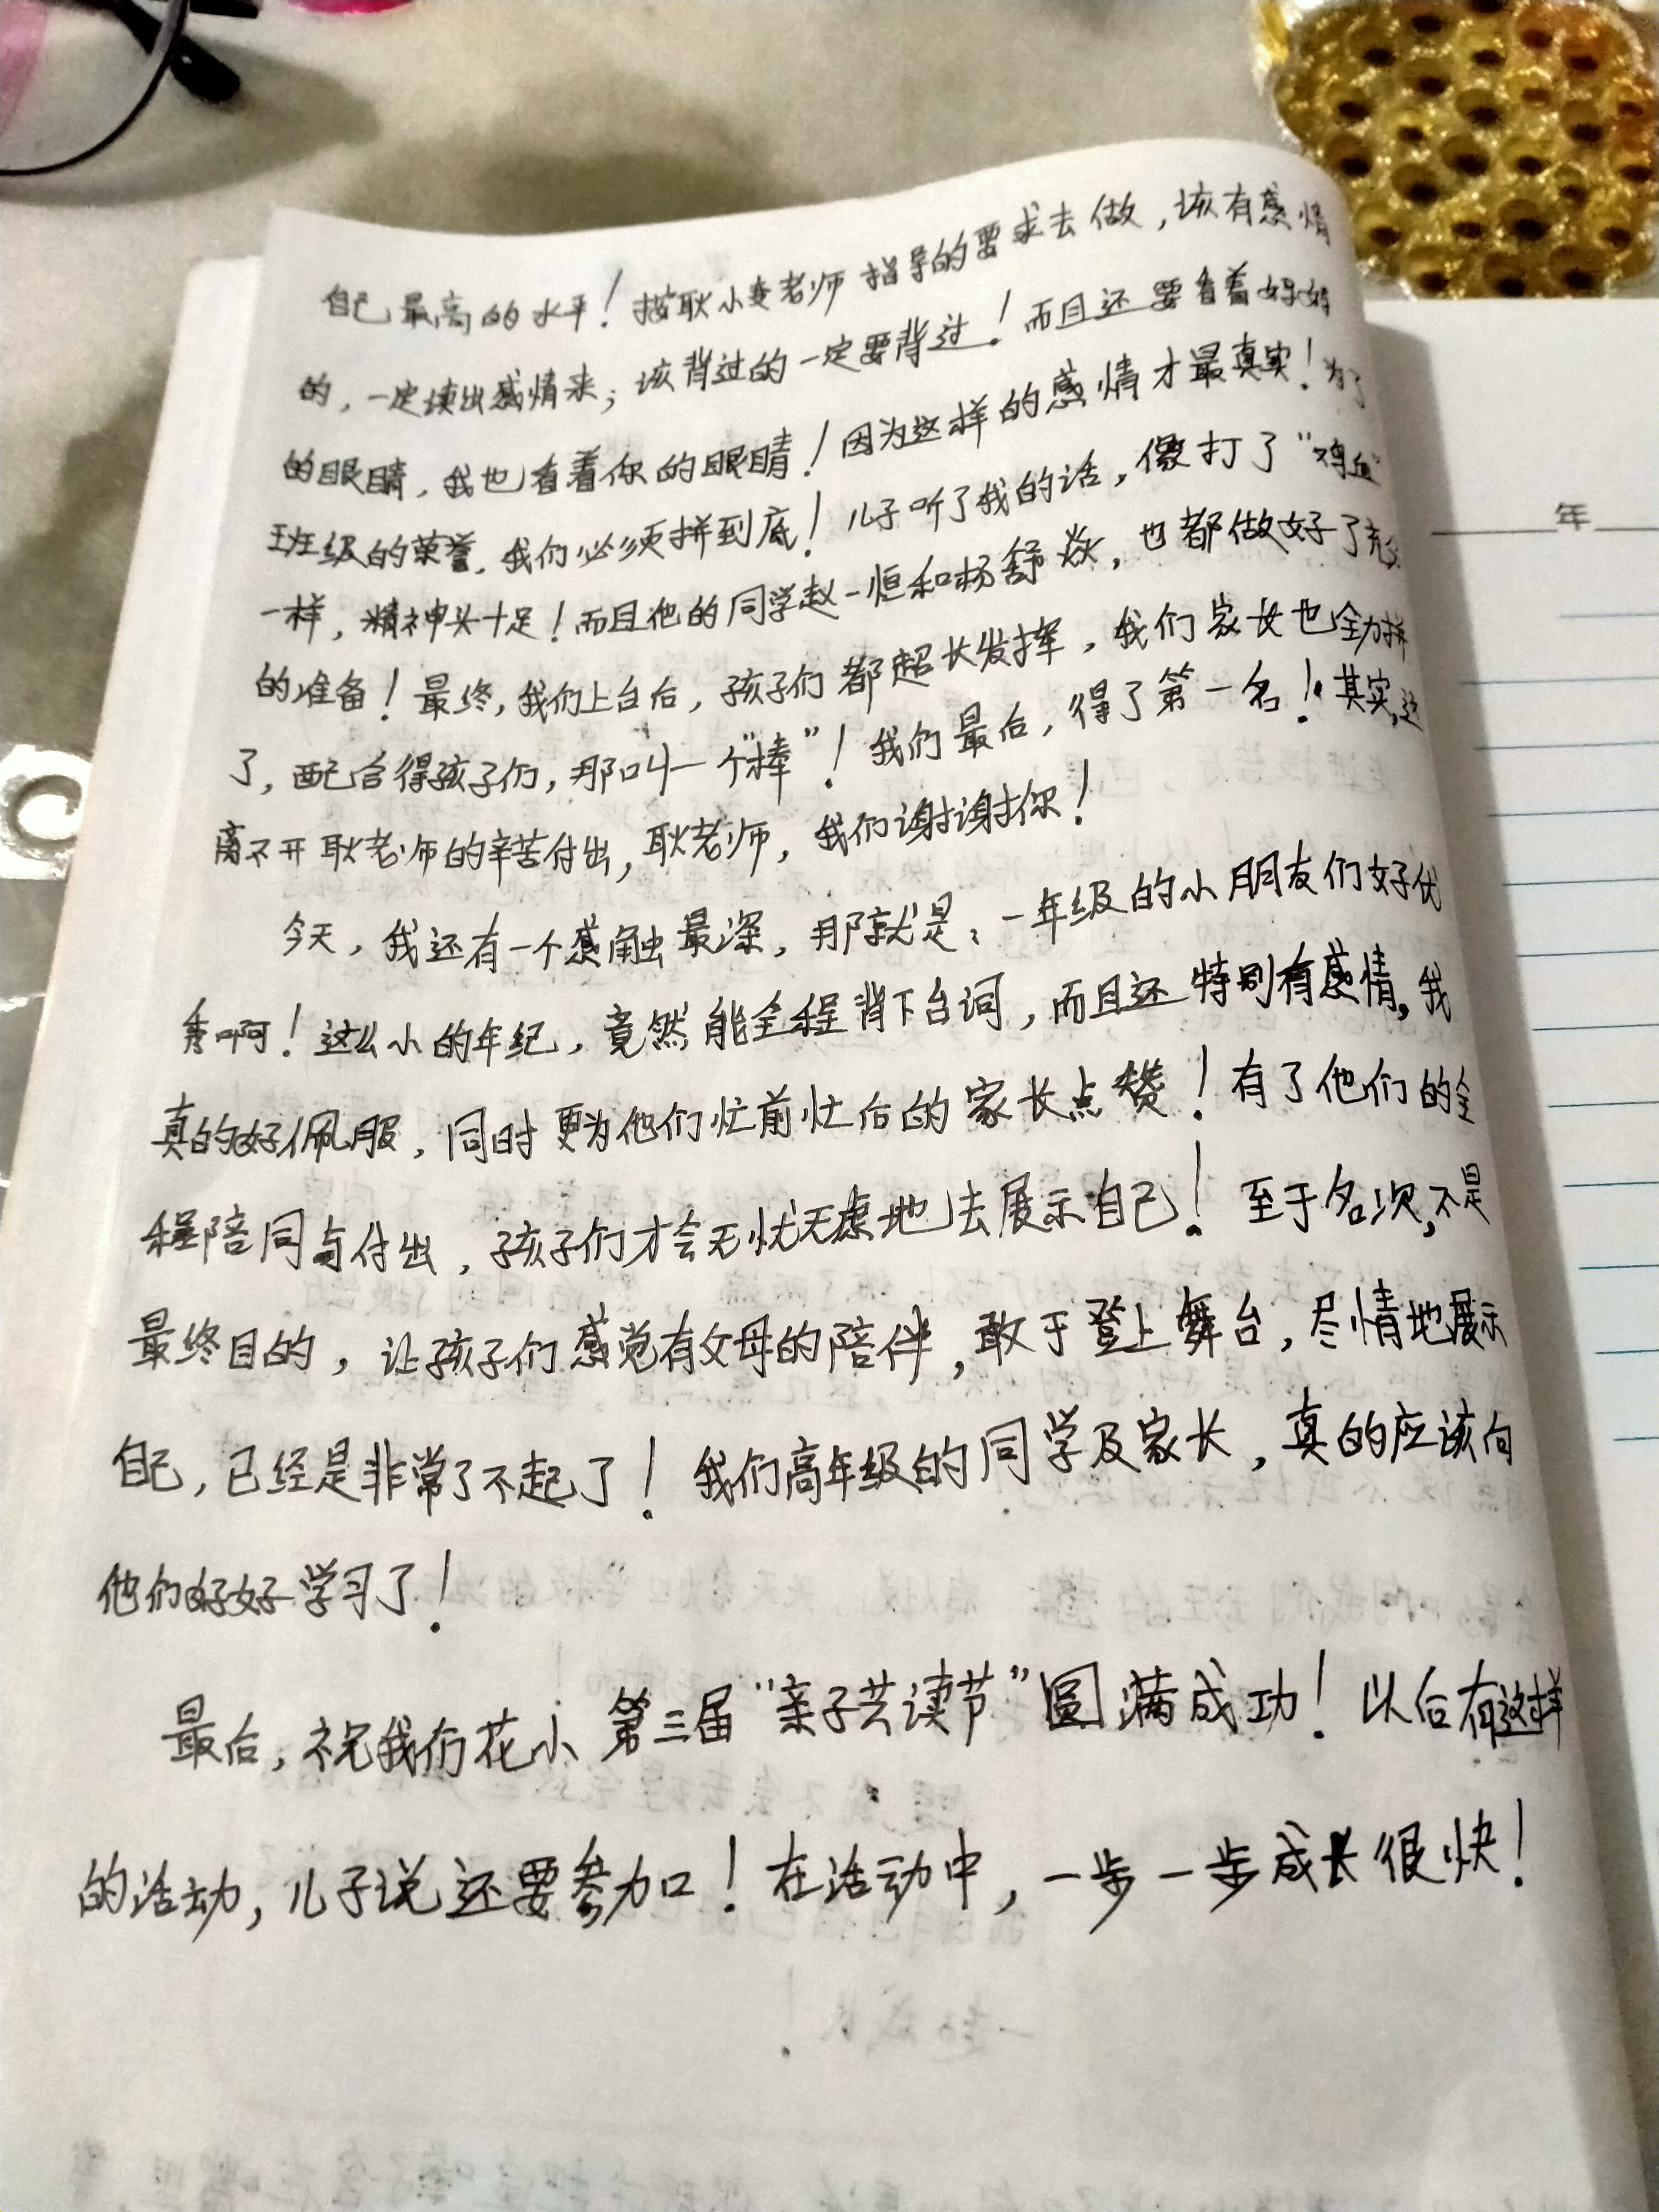 自己最高的水平！按耿小麦老师指导的要求去做，该有感情
的，一定读出感情来；该背过的一定要背过！而且还要看着妈妈
的眼睛，我也看着你的眼睛！因为这样的感情才最真实！为了
班级的荣誉，我们必须拼到底！儿子听了我的话，像打了“鸡血”
一样，精神头十足！而且他的同学赵一恒和杨舒焱，也都做好了充分
的准备！最终，我们上台后，孩子们都超长发挥，我们家长也全力拼
了，配合得孩子们，那叫一个“棒”！我们最后，得了第一名！其实，这
离不开耿老师的辛苦付出，耿老师，我们谢谢你！
今天，我还有一个感触最深，那就是：一年级的小朋友们好优
秀啊！这么小的年纪，竟然能全程背下台词，而且还特别有感情，我
真的好佩服，同时更为他们忙前忙后的家长点赞！有了他们的全
程陪同与付出，孩子们才会无忧无虑地去展示自己！至于名次，不是
最终目的，让孩子们感觉有父母的陪伴，敢于登上舞台，尽情地展示
自己，已经是非常了不起了！我们高年级的同学及家长，真的应该向
他们好好学习了！
最后，祝我们花小第三届“亲子共读节”圆满成功！以后有这样
的活动，儿子说还要参加！在活动中，一步一步成长很快！
年